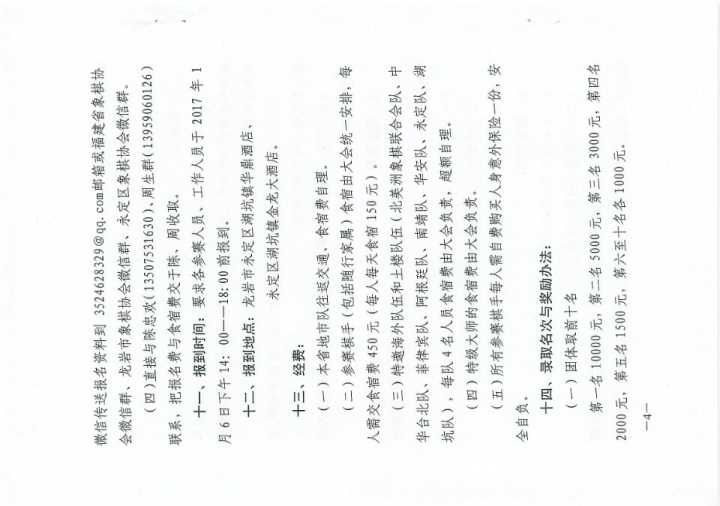 微信传送报名资料到 3524628329@qq.com邮箱或福建省象棋协
会微信群、龙岩市象棋协会微信群、永定区象棋协会微信群。
（四）直接与陈忠欢(13507531630)、周生群(13959060126)
联系，把报名费与食宿费交于陈、周收取。
十一、报到时间：要求各参赛人员、工作人员于 2017 年 1
月 6 日下午 14：00——18:00 前报到。
十二、报到地点：龙岩市永定区湖坑镇华鼎酒店、
永定区湖坑镇金龙大酒店。
十三、经费：
（一）本省地市队往返交通、食宿费自理。
（二）参赛棋手（包括随行家属）食宿由大会统一安排，每
人需交食宿费 450 元（每人每天食宿 150 元）。
（三）特邀海外队伍和土楼队伍（北美洲象棋联合会队、中
华台北队、菲律宾队、阿根廷队、南靖队、华安队、永定队、湖
坑队），每队 4 名人员食宿费由大会负责，超额自理。
（四）特级大师的食宿费由大会负责。
（五）所有参赛棋手每人需自费购买人身意外保险一份，安
全自负。
十四、录取名次与奖励办法：
（一）团体取前十名
第一名 10000 元，第二名 5000 元，第三名 3000 元，第四名
2000 元，第五名 1500 元，第六至十名各 1000 元。
—4—